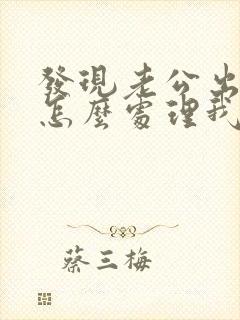 發現老公出
怎麼處理我
蔡三梅